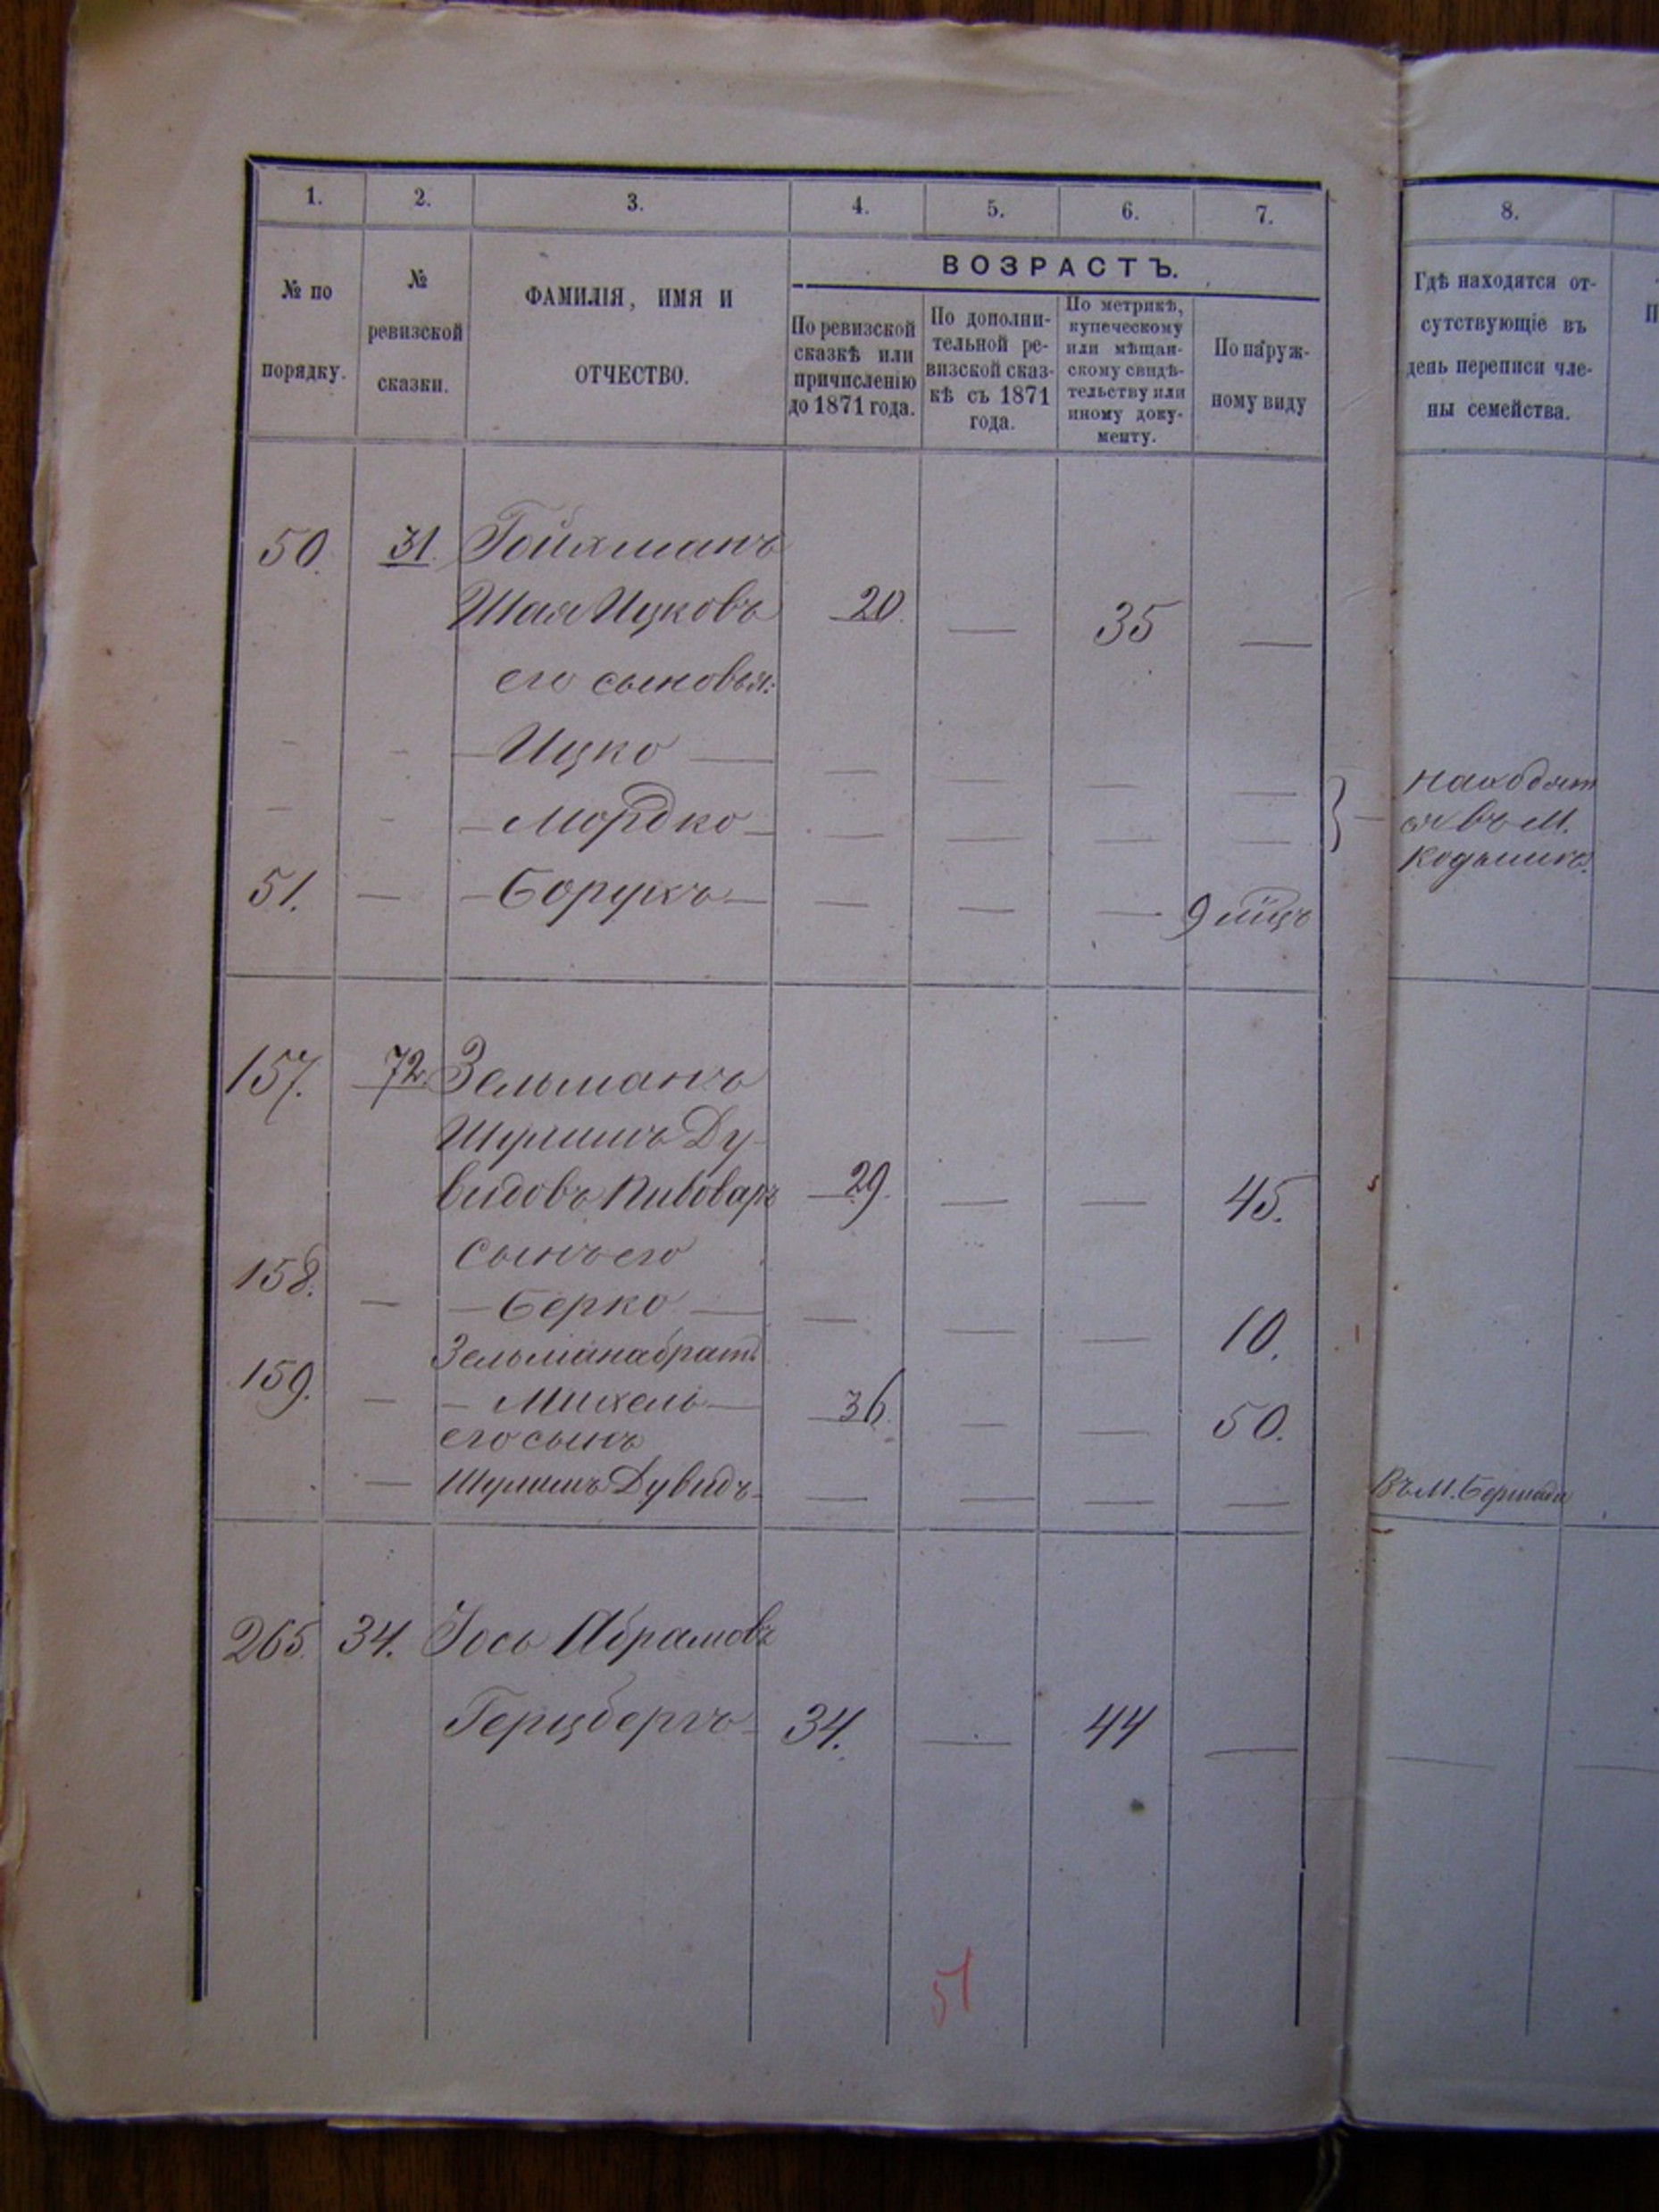 1. 2. 3. 4. 5. 6. 7. 8.
№ по порядку.
№ ревизской сказки.
ФАМИЛІЯ, ИМЯ И ОТЧЕСТВО.
ВОЗРАСТЪ.
По ревизской
сказкѣ или
причисленію
до 1871 года.
По дополни-
тельной ре-
визской сказ-
кѣ съ 1871
года.
По метрикѣ,
купеческому
или мѣщан-
скому свидѣ-
тельству или
иному доку-
менту.
По наруж-
ному виду
Гдѣ находятся от-
сутствующіе въ
день переписи чле-
ны семейства.
50. 31. Гойхманъ
Шая Ицковъ 20. — 35 —
его сыновья:
— Ицко — — — — —
— Мордко — — — — —
находят
ся въ М.
Кодыми
51. — — Борухъ — — — — 9 мцъ
157. 72. Зельманъ
Шулимъ Ду-
видовъ Пивоваръ 29. — — 45.
сынъ его
158. — — Берко — — — — 10.
Зельмана братъ
159. — — Михель — 36. — — 50.
его сынъ
— Шулимъ Дувидъ — — — — — Въ М. Бершади
265. 34. Іось Абрамовъ
Герцбергъ — 34. — 44 —
51